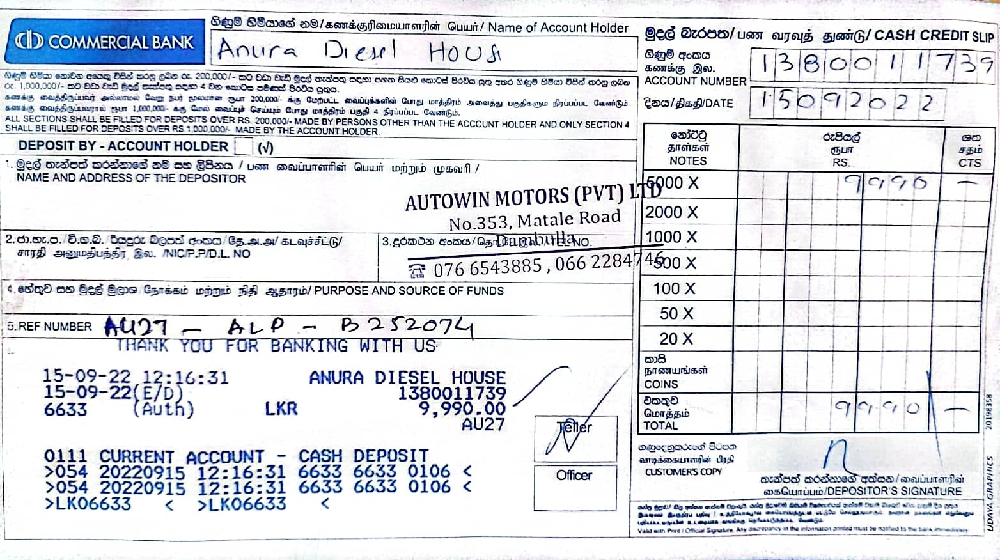 COMMERCIAL BANK
ගිණුම් හිමියාගේ නම/கணக்குரிமையாளரின் பெயர்/ Name of Account Holder
Anura Diesel House
මුදල් බැරපත/பண வரவுத் துண்டு/ CASH CREDIT SLIP
ගිණුම් අංකය
கணக்கு இல.
ACCOUNT NUMBER
1380011739
දිනය/திகதி/DATE
15092022
ALL SECTIONS SHALL BE FILLED FOR DEPOSITS OVER RS. 200,000/- MADE BY PERSONS OTHER THAN THE ACCOUNT HOLDER AND ONLY SECTION 4
SHALL BE FILLED FOR DEPOSITS OVER RS 1,000,000/- MADE BY THE ACCOUNT HOLDER.
DEPOSIT BY - ACCOUNT HOLDER (√)
1. මුදල් තැන්පත් කරන්නාගේ නම සහ ලිපිනය / பண வைப்பாளரின் பெயர் மற்றும் முகவரி /
NAME AND ADDRESS OF THE DEPOSITOR
AUTOWIN MOTORS (PVT) LTD
No.353, Matale Road
Dambulla
☏ 076 6543885, 066 2284746
சாரதி அனுமதிபத்திர இல. /NIC/P.P/D.L. NO
3. දුරකථන අංකය/ NO.
4. හේතුව සහ මුදල් මූලාශ්‍ර/நோக்கம் மற்றும் நிதி ஆதாரம்/ PURPOSE AND SOURCE OF FUNDS
5. REF NUMBER AU27 - ALP - B252074
නෝට්ටු
தாள்கள்
NOTES
රුපියල්
ரூபா
RS.
ශත
சதம்
CTS
5000 X 9990 —
2000 X
1000 X
500 X
100 X
50 X
20 X
කාසි
நாணயங்கள்
COINS
එකතුව
மொத்தம்
TOTAL
9990 —
THANK YOU FOR BANKING WITH US
15-09-22 12:16:31 ANURA DIESEL HOUSE
15-09-22(E/D) 1380011739
6633 (Auth) LKR 9,990.00
AU27
0111 CURRENT ACCOUNT - CASH DEPOSIT
>054 20220915 12:16:31 6633 6633 0106 <
>054 20220915 12:16:31 6633 6633 0106 <
>LK06633 < >LK06633 <
Teller
Officer
ගනුදෙනුකරුගේ පිටපත
வாடிக்கையாளரின் பிரதி
CUSTOMER'S COPY
තැන්පත් කරන්නාගේ අත්සන/வைப்பாளரின்
கையொப்பம்/DEPOSITOR'S SIGNATURE
Valid with Print / Official Signature. Any discrepancy in the information printed must be notified to the bank immediately.
UDAYA GRAPHICS
20198358